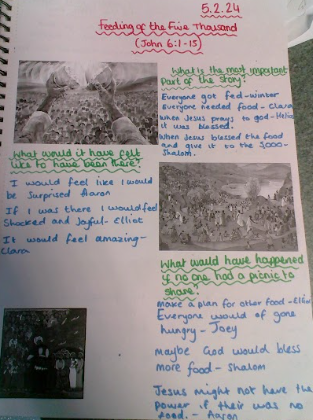 5.2.24
Feeding of the Five Thousand
(John 6:1-15)
What is the most important
part of the story?
Everyone got fed - winter
Everyone needed food - Clara
When Jesus prays to god -
it was blessed.
When Jesus blessed the food
and give it to the 5,000 -
Shalom.
What would it have felt
like to have been there?
I would feel like I would
be Surprised Aaron
If I was there I would feel
Shocked and Joyful - Elliot
It would feel amazing -
Clara
What would have happened
if no one had a picnic to
share?
Make a plan for other food -
Everyone would of gone
hungry - Joey
Maybe God would bless
more food - Shalom
Jesus might not have the
power if their was no
food. - Aaron